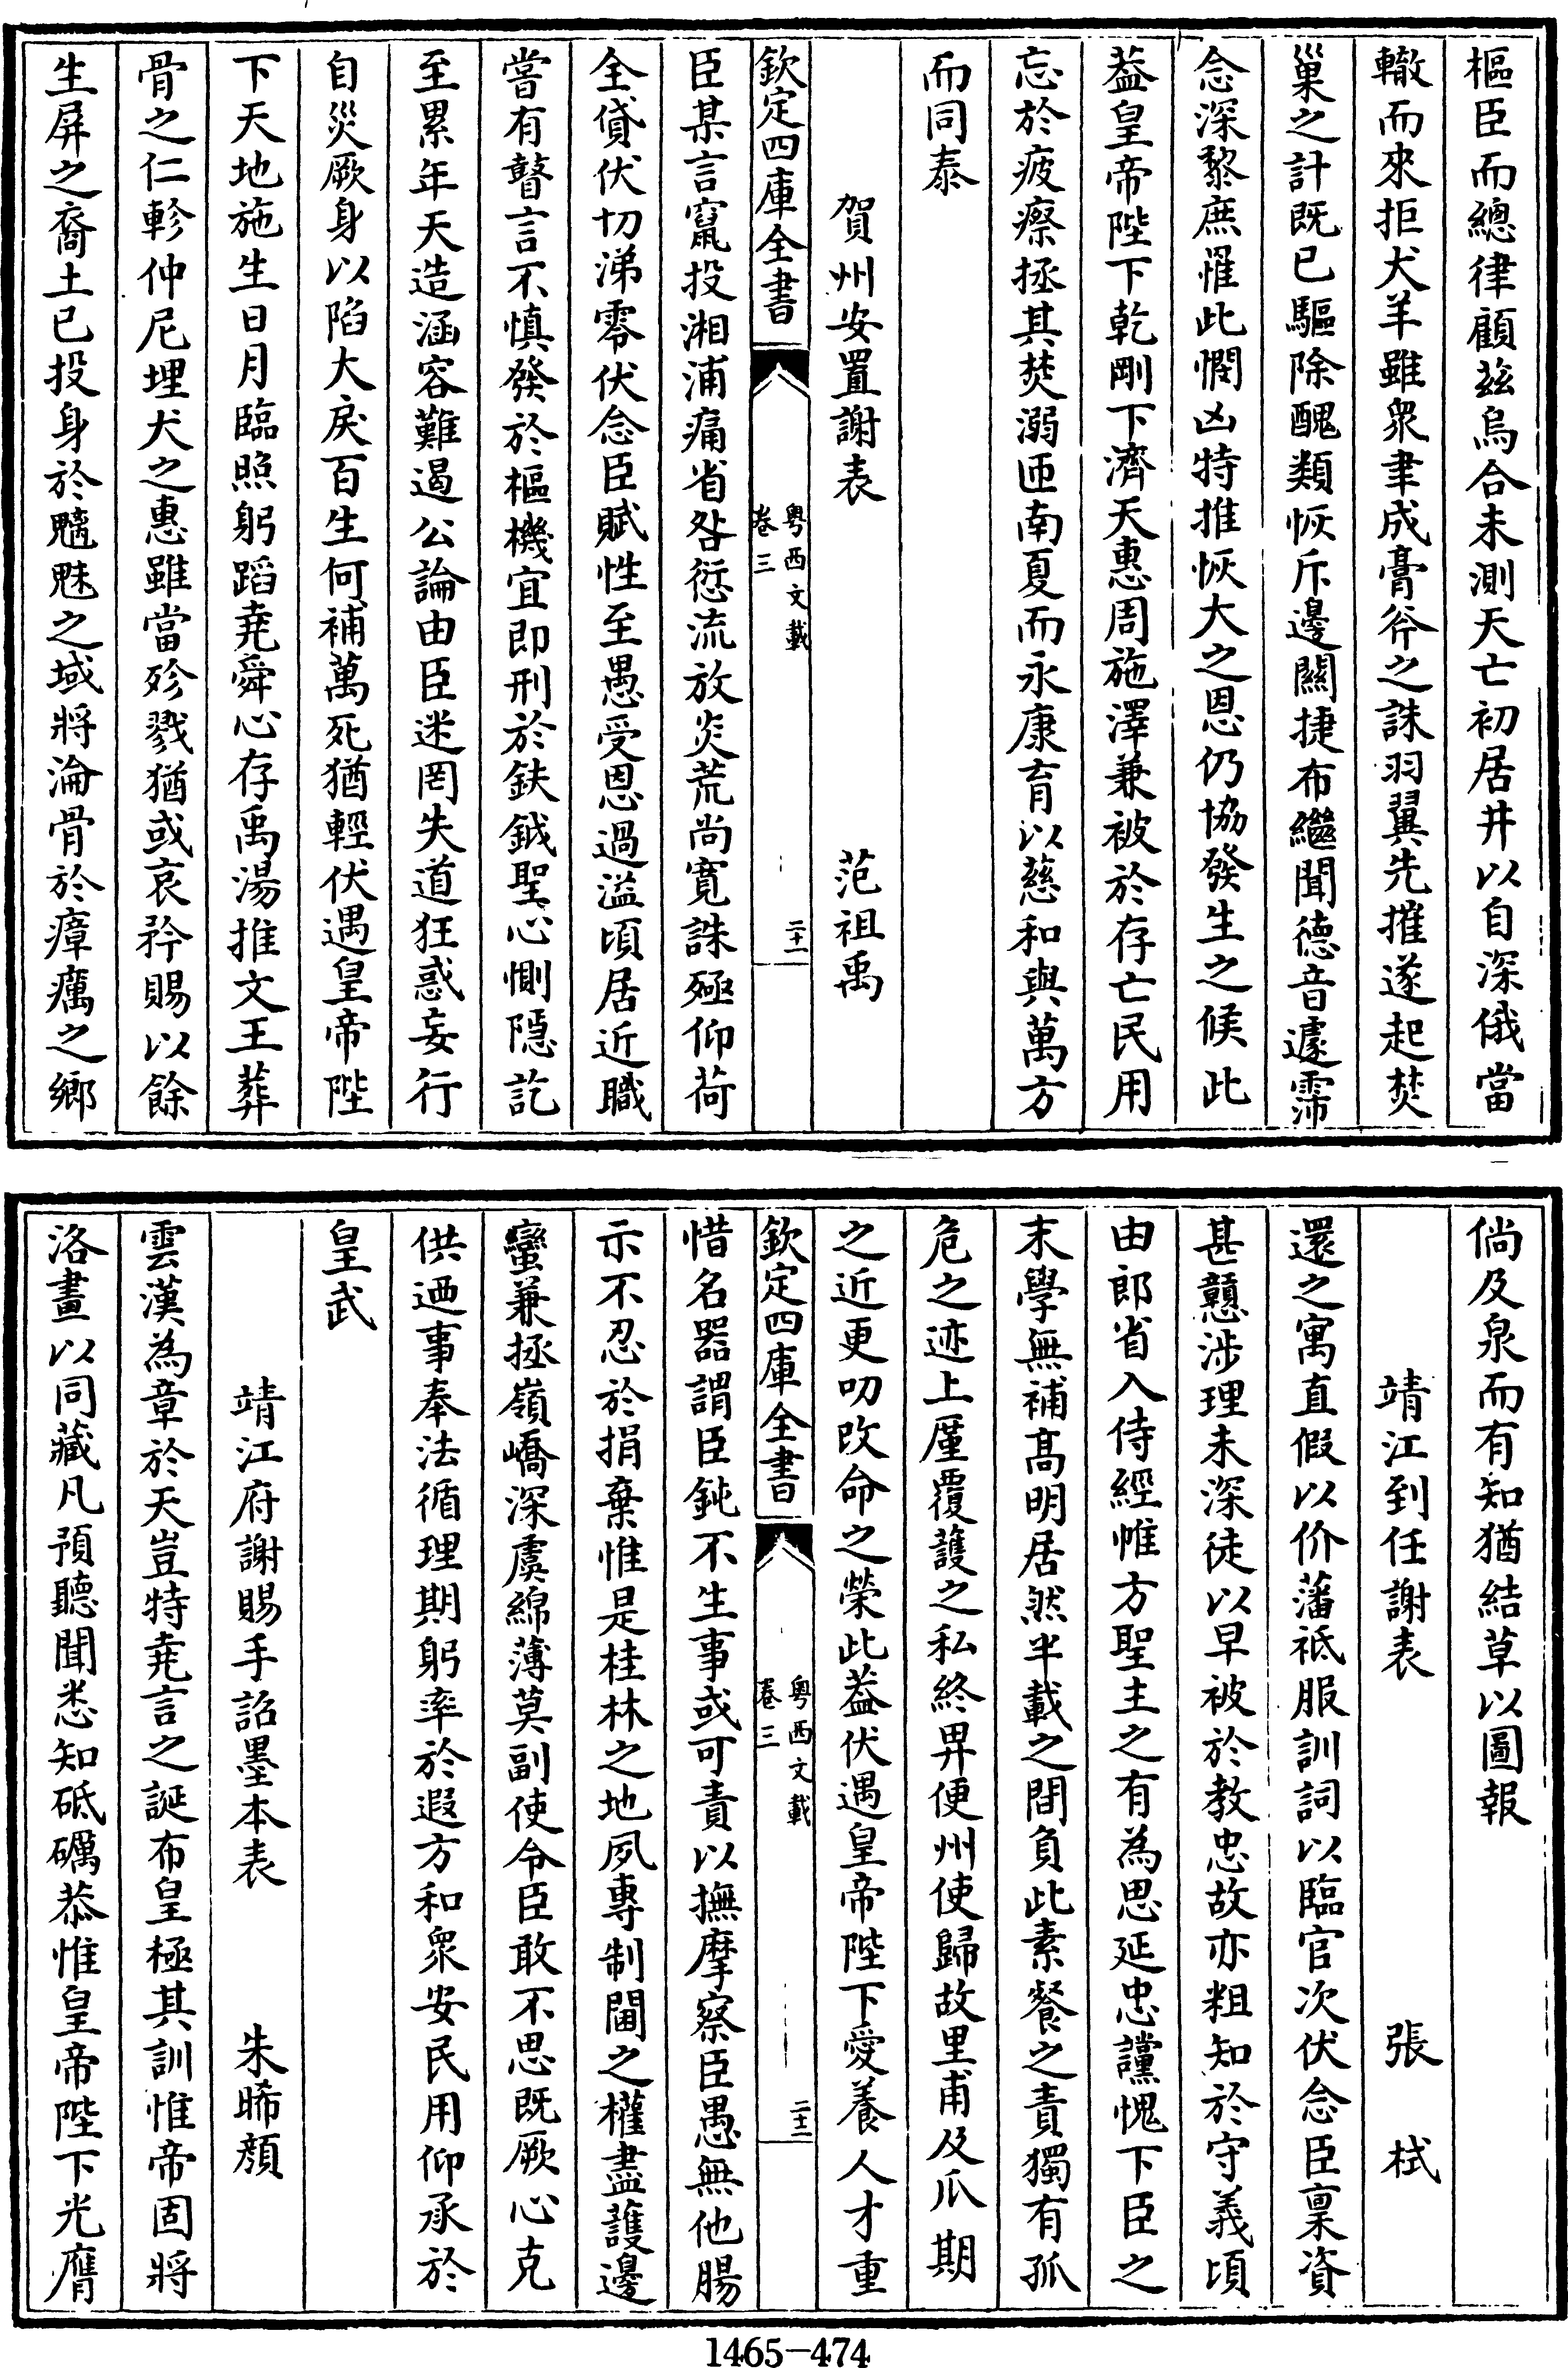 樞臣而總律顧兹烏合未測天亡初居井以自深俄當
轍而來拒犬羊雖衆聿成膏斧之誅羽翼先摧遂起焚
巢之計既已驅除醜類恢斥邊關捷布繼聞德音遽霈
念深黎庶罹此憫凶特推恢大之恩仍協發生之候此
葢皇帝陛下乾剛下濟天惠周施澤兼被於存亡民用
忘於疲瘵拯其焚溺匝南夏而永康育以慈和與萬方
而同泰
賀州安置謝表 范祖禹
欽定四庫全書 粤西文載 卷三 二十一
臣某言竄投湘浦痛省咎愆流放炎荒尚寛誅殛仰荷
全貸伏切涕零伏念臣賦性至愚受恩過溢頃居近職
嘗有瞽言不慎發於樞機宜即刑於鈇鉞聖心惻隱訖
至累年天造涵容難遏公論由臣迷罔失道狂惑妄行
自災厥身以陷大戾百生何補萬死猶輕伏遇皇帝陛
下天地施生日月臨照躬蹈堯舜心存禹湯推文王葬
骨之仁軫仲尼埋犬之惠雖當殄戮猶或哀矜賜以餘
生屏之裔土已投身於魑魅之域將淪骨於瘴癘之鄉
倘及泉而有知猶結草以圖報
靖江到任謝表 張栻
還之寓直假以价藩祗服訓詞以臨官次伏念臣禀資
甚戇涉理未深徒以早被於教忠故亦粗知於守義頃
由郎省入侍經帷方聖主之有為思延忠讜愧下臣之
末學無補髙明居然半載之間負此素餐之責獨有孤
危之迹上厪覆護之私終畀便州使歸故里甫及瓜期
之近更叨改命之榮此葢伏遇皇帝陛下愛養人才重
欽定四庫全書 粤西文載 卷三 二十二
惜名器謂臣鈍不生事或可責以撫摩察臣愚無他腸
示不忍於捐棄惟是桂林之地夙專制閫之權盡護邊
蠻兼拯嶺嶠深虞綿薄莫副使令臣敢不思既厥心克
供迺事奉法循理期躬率於遐方和衆安民用仰承於
皇武
靖江府謝賜手詔墨本表 朱晞顔
雲漢為章於天豈特堯言之誕布皇極其訓惟帝固將
洛畫以同藏凡預聽聞悉知砥礪恭惟皇帝陛下光膺
1465-474